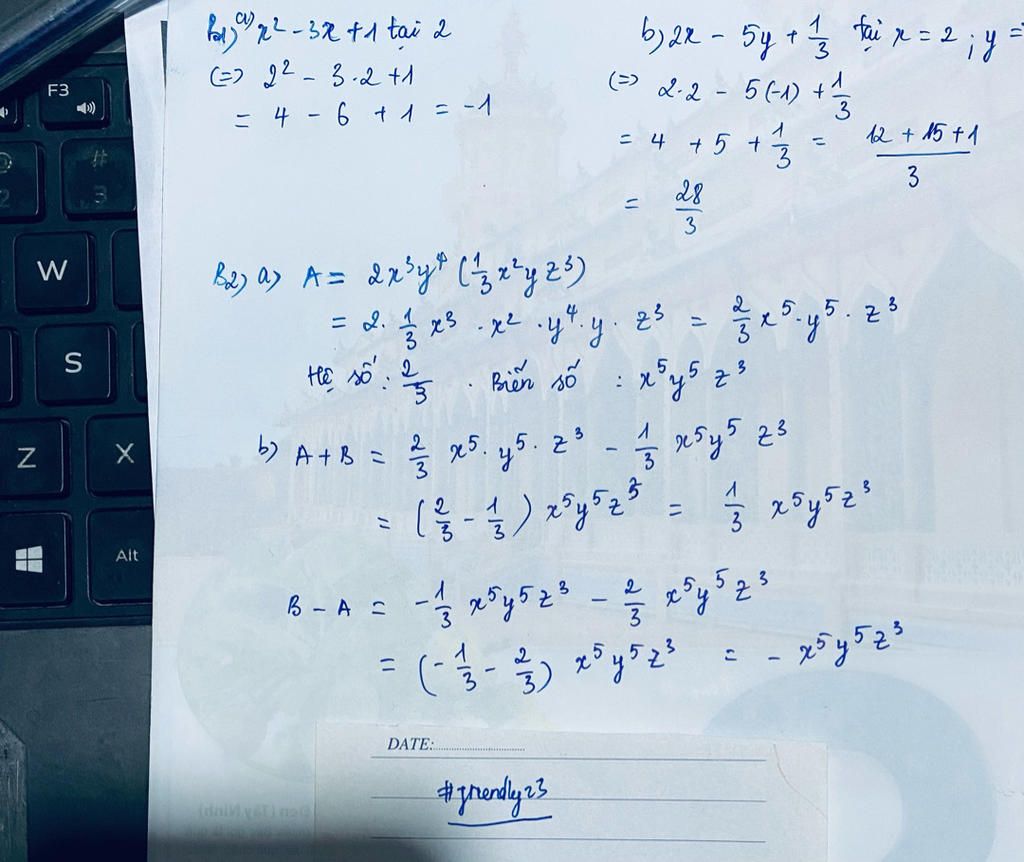 B1) a) x² - 3x + 1 tại 2
(=) 2² - 3·2 + 1
= 4 - 6 + 1 = -1
b) 2x - 5y + 1/3 tại x = 2 ; y =
(=) 2·2 - 5(-1) + 1/3
= 4 + 5 + 1/3 = (12 + 15 + 1)/3
= 28/3
B2) a) A = 2x³y⁴ (1/3 x²yz³)
= 2 · 1/3 x³ · x² · y⁴ · y · z³ = 2/3 x⁵ · y⁵ · z³
Hệ số : 2/3 . Biến số : x⁵y⁵z³
b) A + B = 2/3 x⁵ · y⁵ · z³ - 1/3 x⁵y⁵z³
= (2/3 - 1/3) x⁵y⁵z³ = 1/3 x⁵y⁵z³
B - A = -1/3 x⁵y⁵z³ - 2/3 x⁵y⁵z³
= (-1/3 - 2/3) x⁵y⁵z³ = - x⁵y⁵z³
DATE:
F3
#
3
2
W
S
Z X
Alt